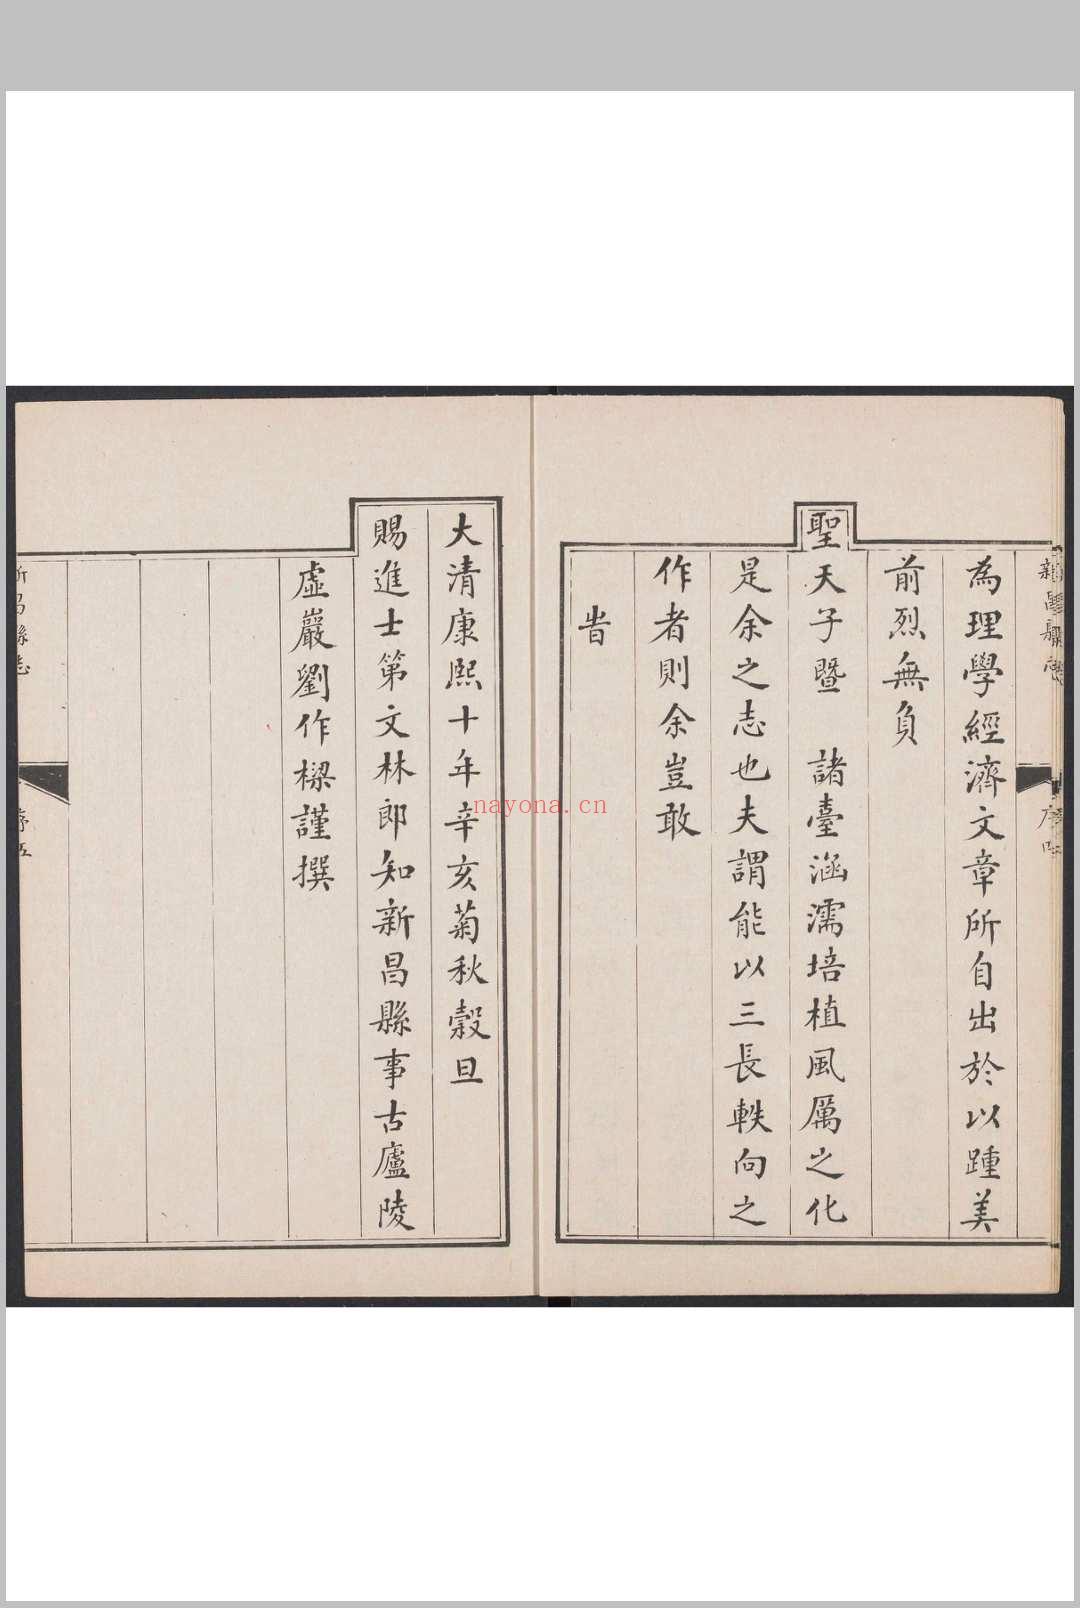 新昌縣志
序四
為理學經濟文章所自出於以踵美
前烈無負
聖天子暨 諸臺涵濡培植風厲之化
是余之志也夫謂能以三長軼向之
作者則余豈敢
旹
大清康熙十年辛亥菊秋穀旦
賜進士第文林郎知新昌縣事古廬陵
虛巖劉作樑謹撰
新昌縣志
序五
nayona.cn